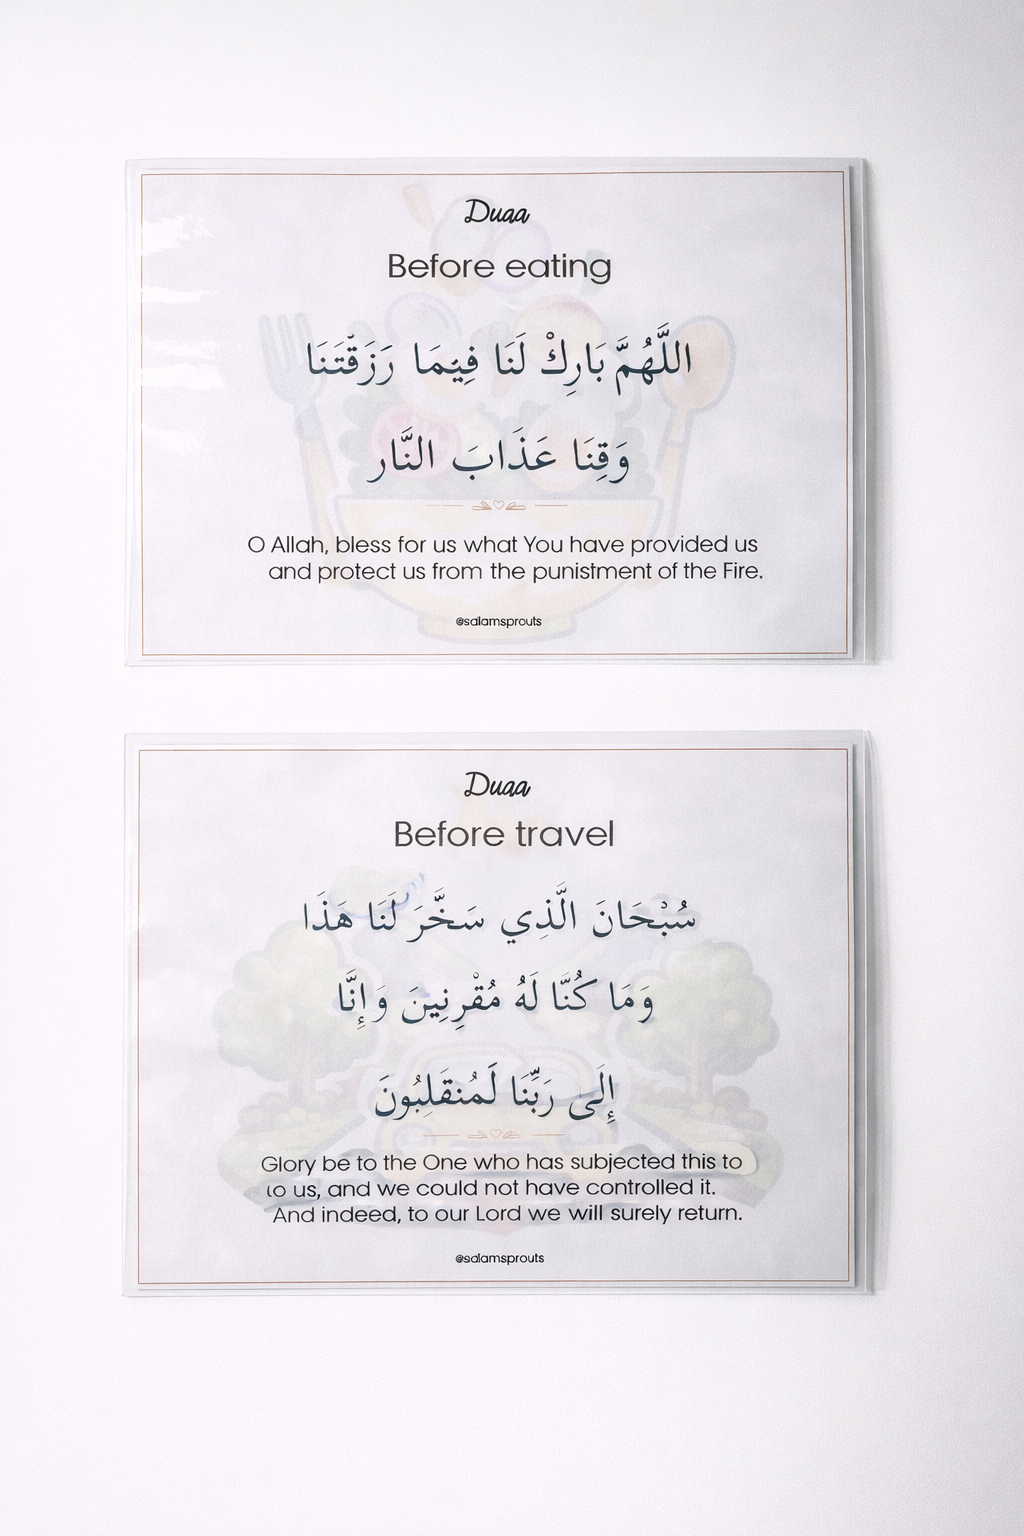 Duaa
Before eating
اللَّهُمَّ بَارِكْ لَنَا فِيْمَا رَزَقْتَنَا
وَقِنَا عَذَابَ النَّار
O Allah, bless for us what You have provided us
and protect us from the punistment of the Fire.
@salamsprouts
Duaa
Before travel
سُبْحَانَ الَّذِي سَخَّرَ لَنَا هَذَا
وَمَا كُنَّا لَهُ مُقْرِنِينَ وَإِنَّا
إِلَى رَبِّنَا لَمُنقَلِبُونَ
Glory be to the One who has subjected this to
to us, and we could not have controlled it.
And indeed, to our Lord we will surely return.
@salamsprouts